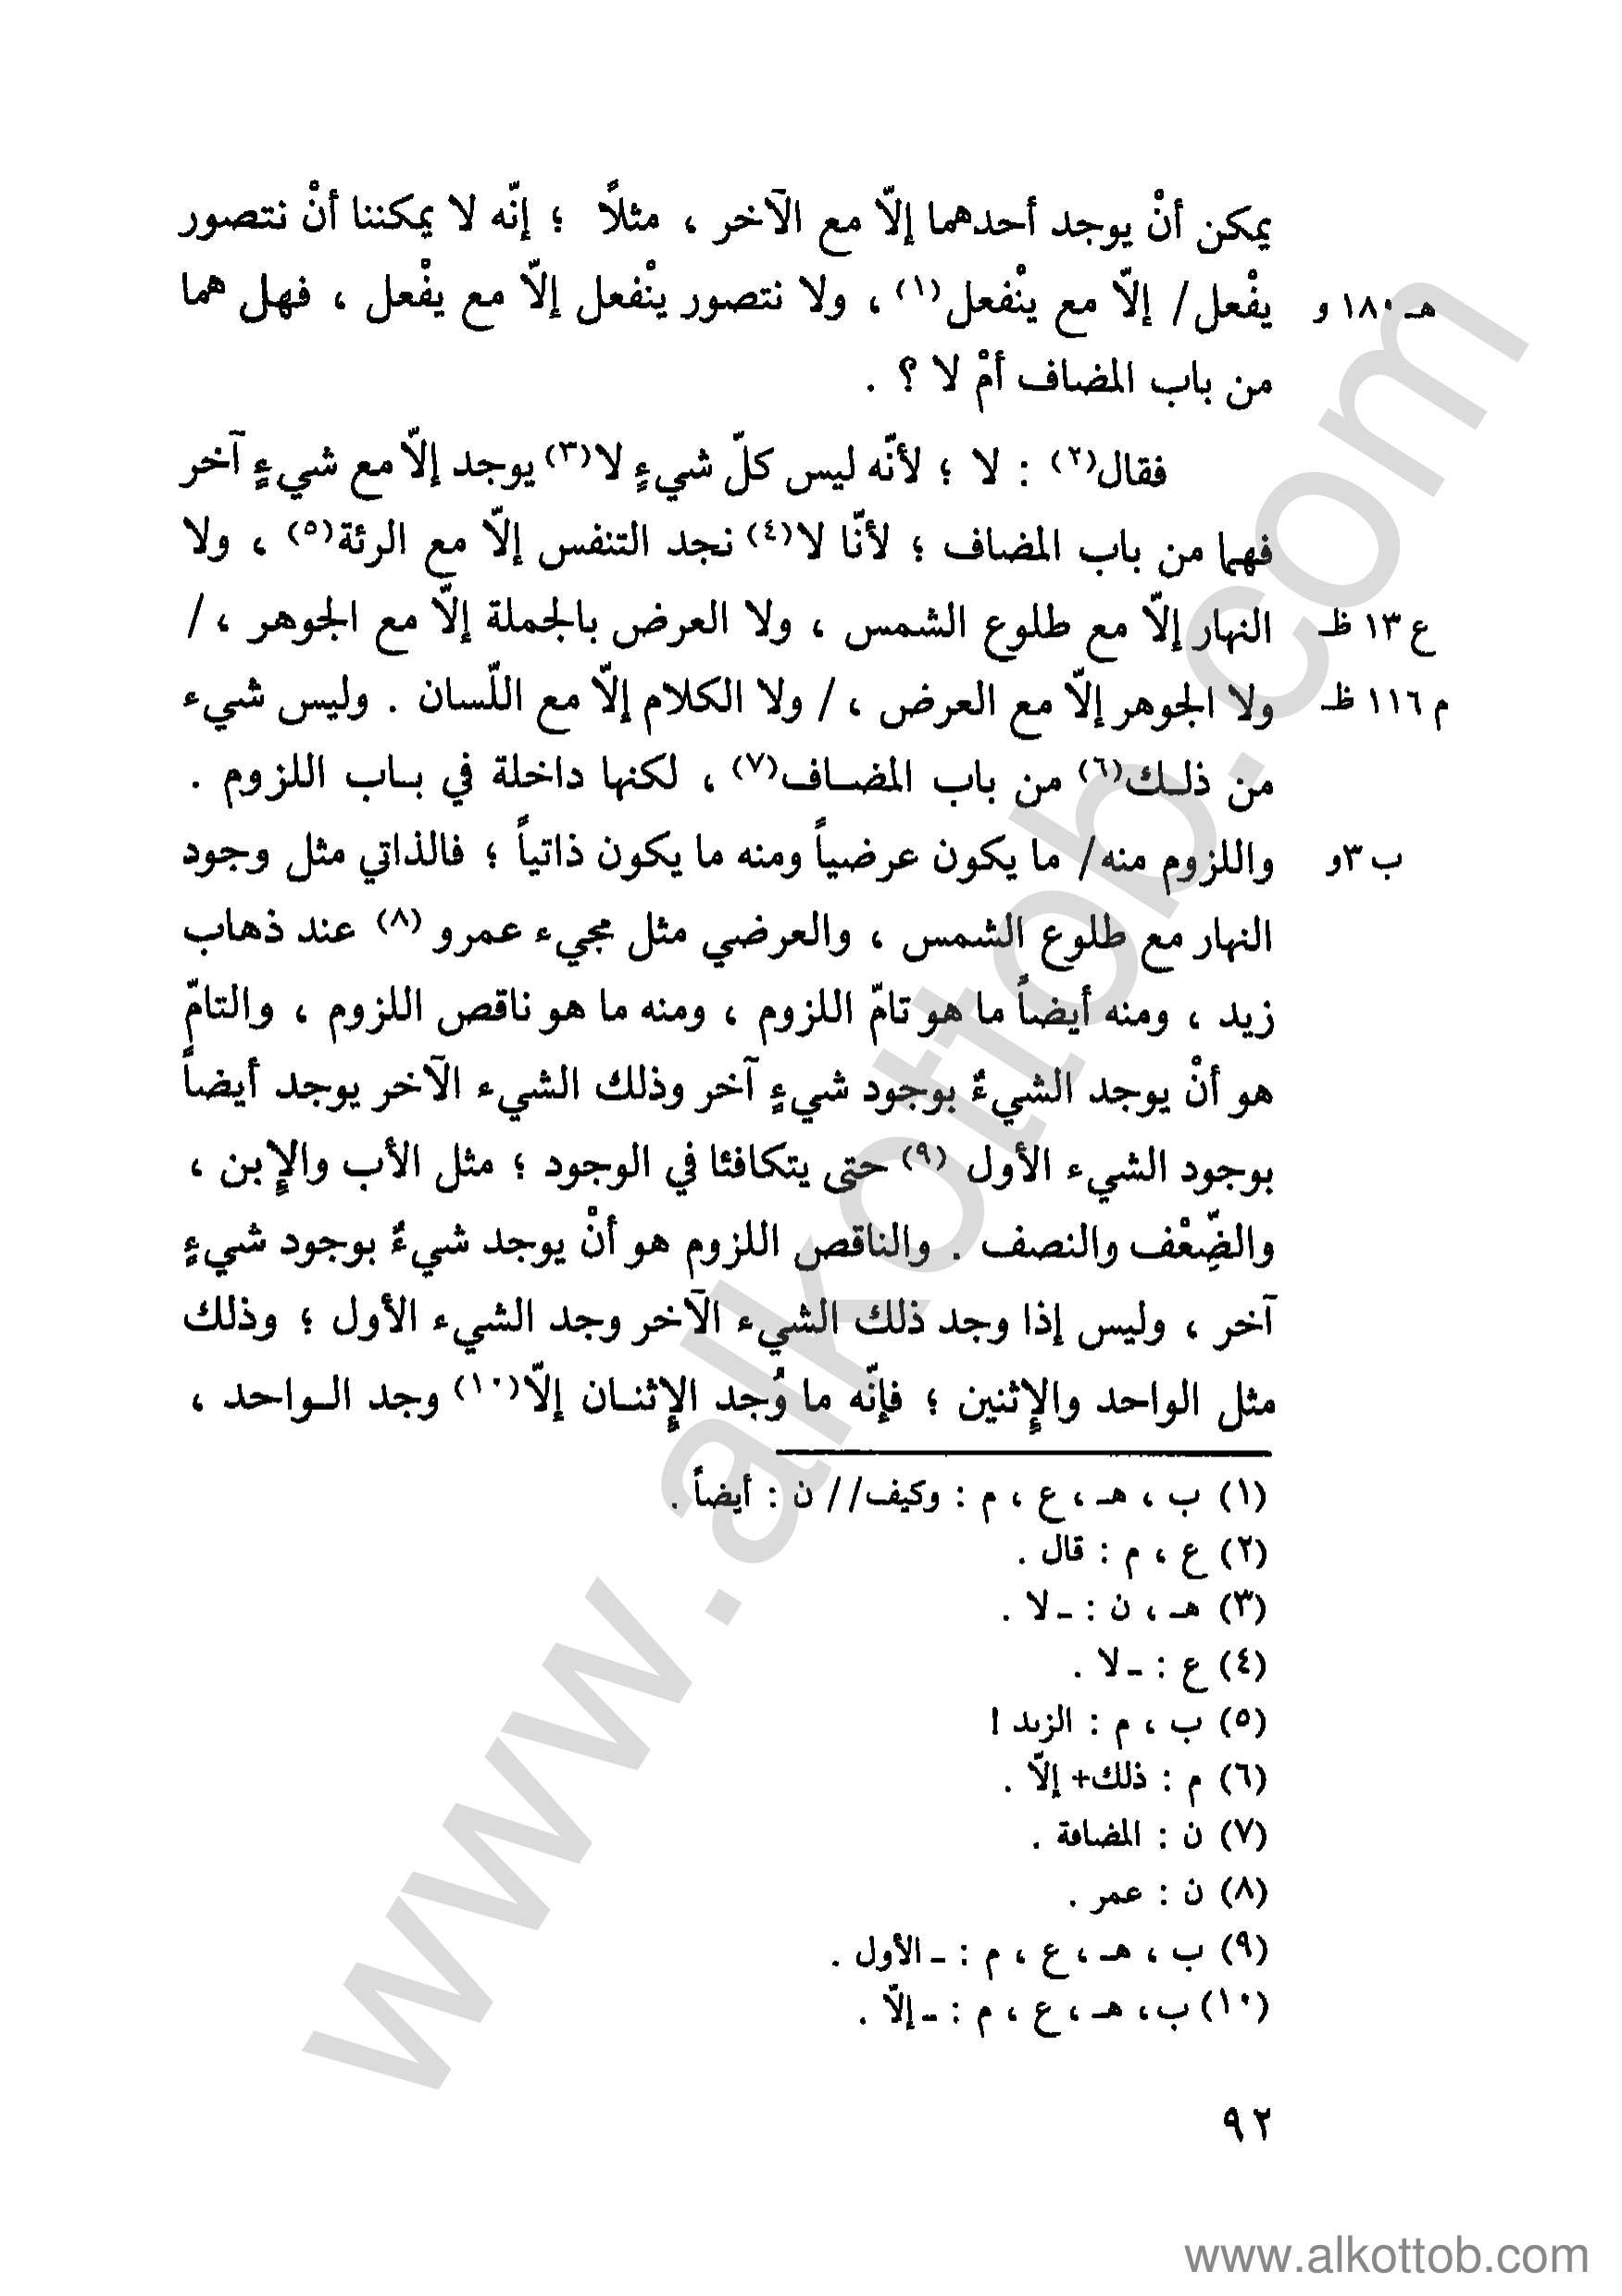 يمكن أنْ يوجد أحدهما إلاّ مع الآخر ، مثلاً ؛ إنّه لا يمكننا أنْ نتصور
هـ ١٨٠ و يفْعل/ إلاّ مع ينْفعل(١) ، ولا نتصور ينْفعل إلاّ مع يفْعل ، فهل هما
من باب المضاف أمْ لا ؟ .
فقال(٢) : لا ؛ لأنّه ليس كلّ شيءٍ لا(٣) يوجد إلاّ مع شيءٍ آخر
فهما من باب المضاف ؛ لأنّا لا(٤) نجد التنفس إلاّ مع الرئة(٥) ، ولا
ع ١٣ ظـ النهار إلاّ مع طلوع الشمس ، ولا العرض بالجملة إلاّ مع الجوهر ، /
م ١١٦ ظـ ولا الجوهر إلاّ مع العرض ، / ولا الكلام إلاّ مع اللّسان . وليس شيء
من ذلـك(٦) من باب المضـاف(٧) ، لكنها داخلة في بـاب اللزوم .
ب ٣و واللزوم منه/ ما يكون عرضياً ومنه ما يكون ذاتياً ؛ فالذاتي مثل وجود
النهار مع طلوع الشمس ، والعرضي مثل مجيء عمرو (٨) عند ذهاب
زيد ، ومنه أيضاً ما هو تامّ اللزوم ، ومنه ما هو ناقص اللزوم ، والتامّ
هو أنْ يوجد الشيءُ بوجود شيءٍ آخر وذلك الشيء الآخر يوجد أيضاً
بوجود الشيء الأول (٩) حتى يتكافئا في الوجود ؛ مثل الأب والإبن ،
والضِّعْف والنصف . والناقص اللزوم هو أنْ يوجد شيءٌ بوجود شيءٍ
آخر ، وليس إذا وجد ذلك الشيء الآخر وجد الشيء الأول ؛ وذلك
مثل الواحد والإثنين ؛ فإنّه ما وُجد الإثنـان إلاّ(١٠) وجد الـواحد ،
(١) ب ، هـ ، ع ، م : وكيف// ن : أيضاً .
(٢) ع ، م : قال .
(٣) هـ ، ن : ـ لا .
(٤) ع : ـ لا .
(٥) ب ، م : الزيد !
(٦) م : ذلك+ إلاّ .
(٧) ن : المضافة .
(٨) ن : عمر .
(٩) ب ، هـ ، ع ، م : ـ الأول .
(١٠) ب ، هـ ، ع ، م : ـ إلاّ .
٩٢
www.alkottob.com
www.alkottob.com